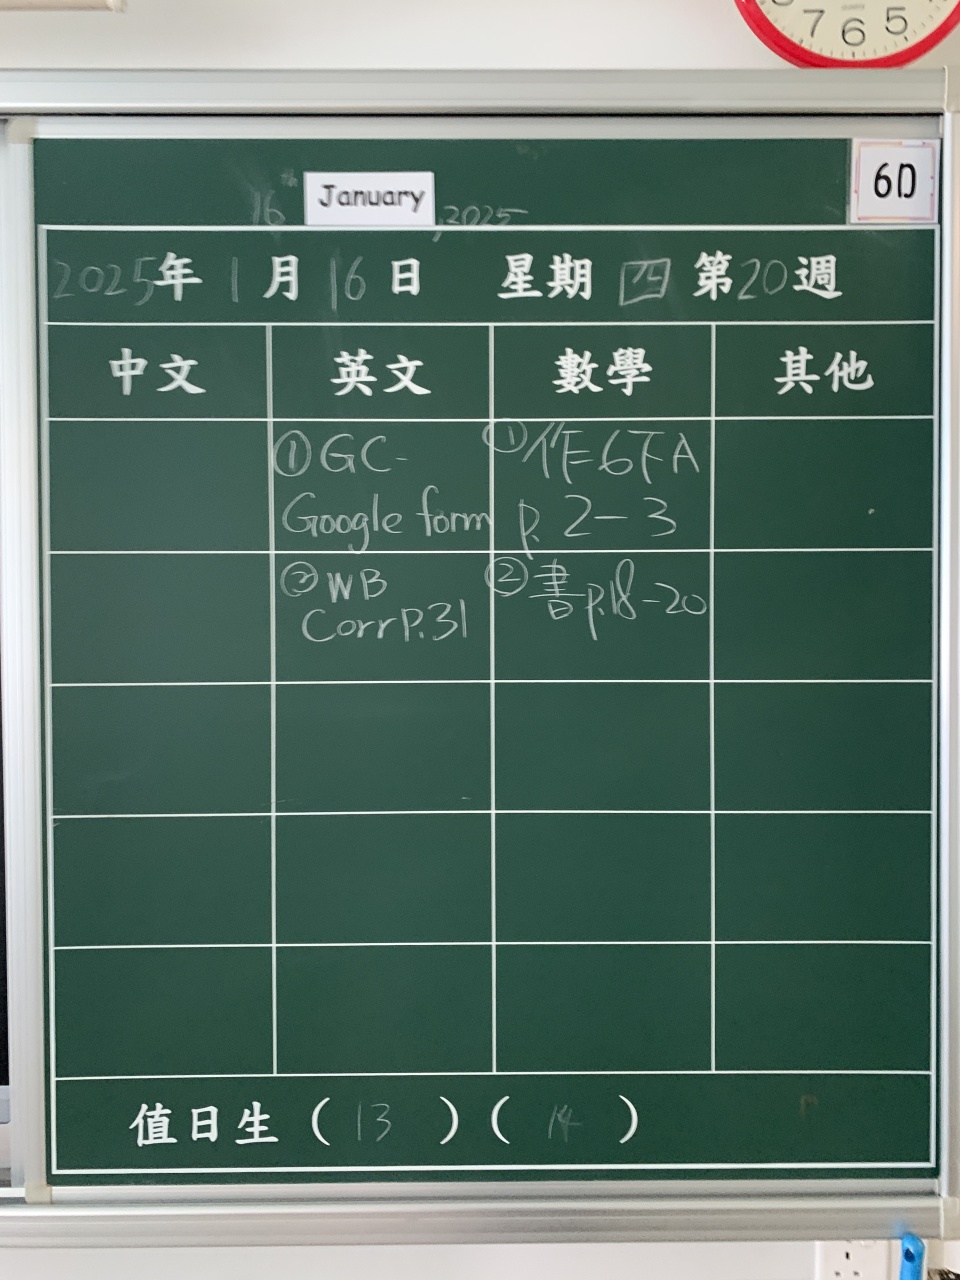 7 6 5
6D
16 January, 2025
2025年1月16日 星期四 第20週
中文 英文 數學 其他
①GC-
Google form
②WB
Corr P.31
①作6下A
p. 2-3
②書p.18-20
值日生 ( 13 ) ( 14 )